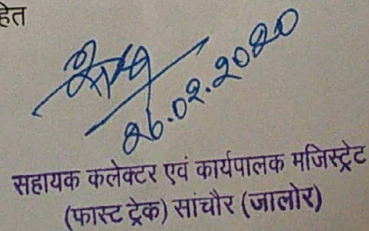 हित
26.02.2020
सहायक कलेक्टर एवं कार्यपालक मजिस्ट्रेट
(फास्ट ट्रेक) सांचौर (जालोर)